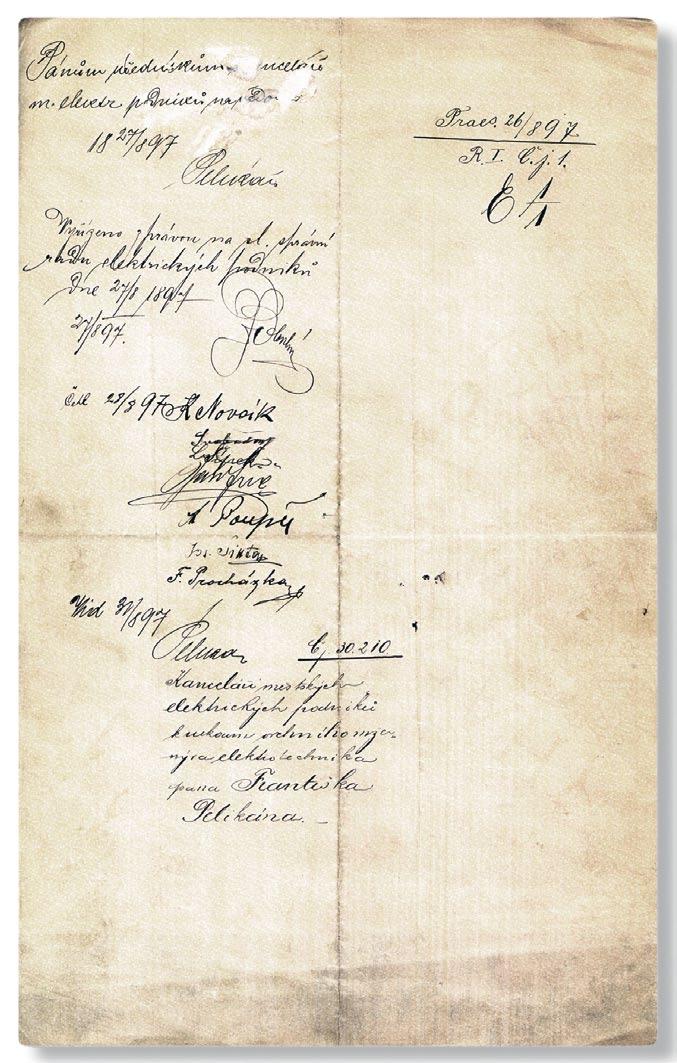 Pánům úředníkům
m. elektr. podniků
18 27/8 97
Pelikán
Praes. 26/8 97
R. I. Č. j. 1.
E 1/1
Vyřízeno zprávou na sl. správní
radu elektrických podniků
dne 27/8 1897
27/8 97.
Četl 28/8 97 K Novák
A Poupě
F. Procházka
Vid 31/8 97
Pelikan
Čj. 30.210.
Kanceláři městských
elektrických podniků
k rukoum vrchního inže-
nýra elektrotechnika
pana Františka
Pelikána. -